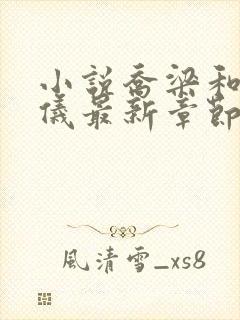 小説喬梁和
儀最新章節
風清雪_xs8